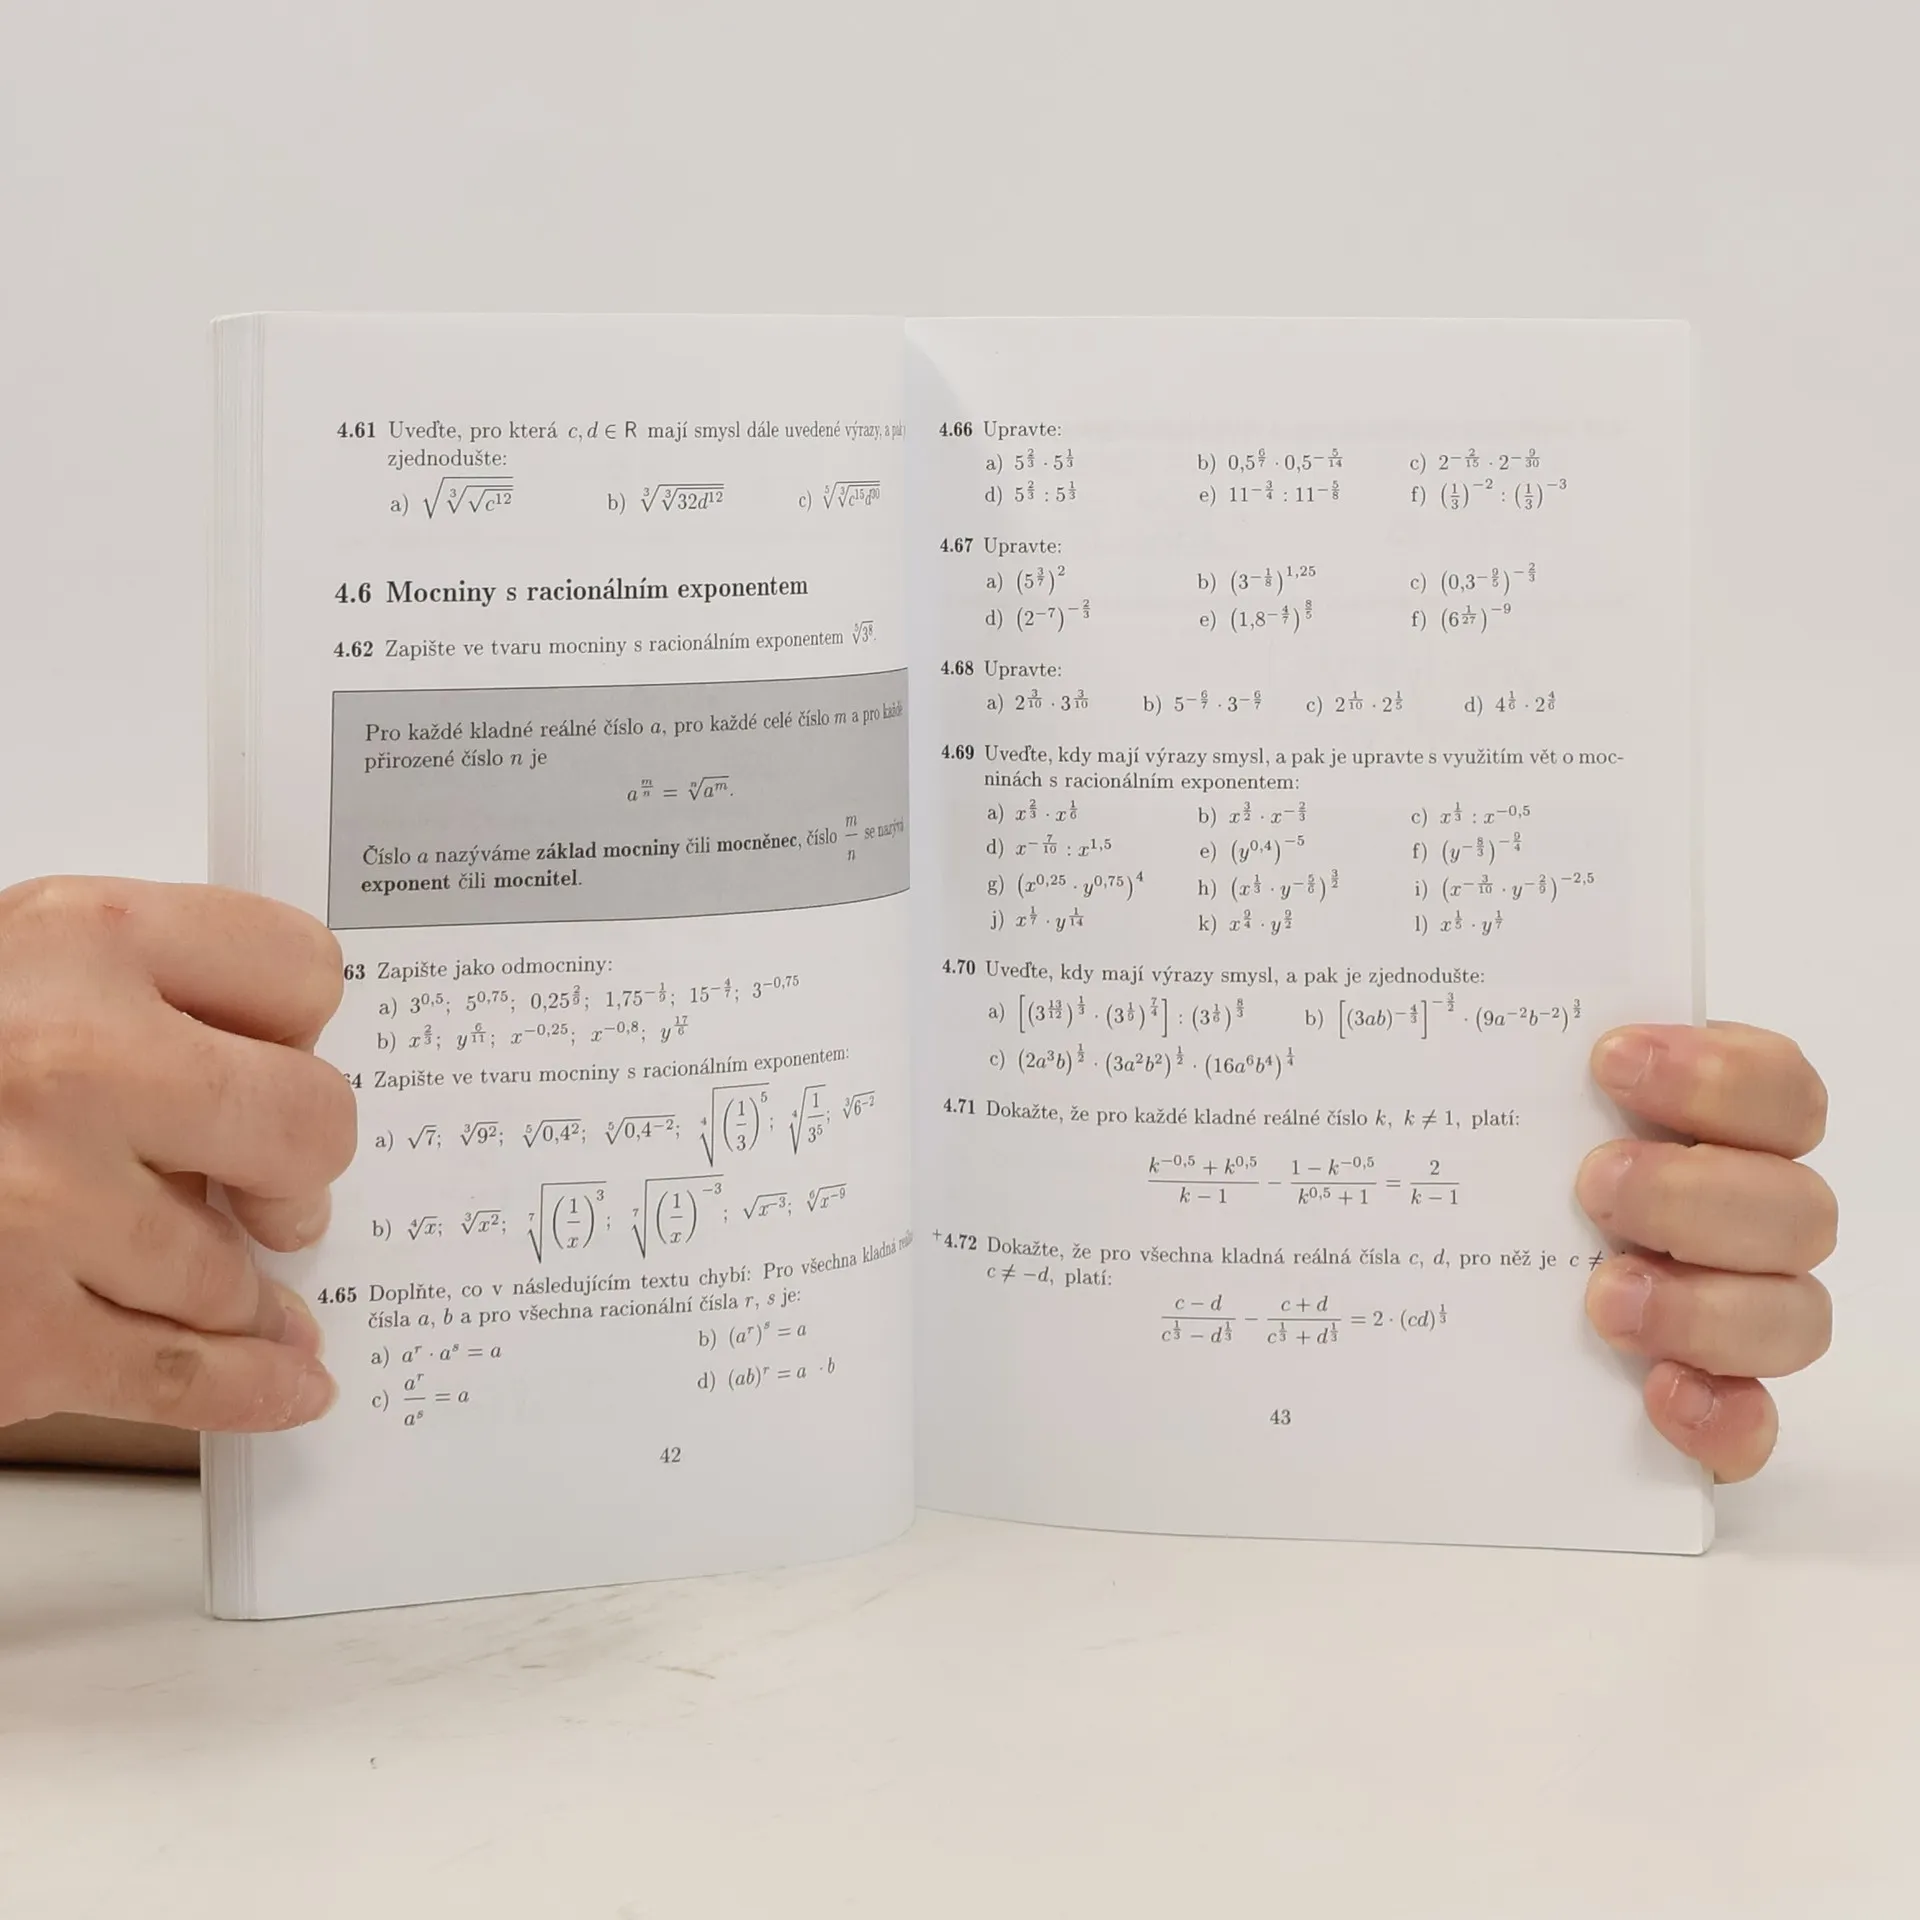 4.61 Uveďte, pro která c, d ∈ R mají smysl dále uvedené výrazy, a pak
zjednodušte:
a) √(∛(√(c¹²))) b) ∛(∛(32d¹²)) c) ⁵√(∛(c¹⁵d³⁰))
4.6 Mocniny s racionálním exponentem
4.62 Zapište ve tvaru mocniny s racionálním exponentem ⁵√(3⁸).
Pro každé kladné reálné číslo a, pro každé celé číslo m a pro každé
přirozené číslo n je
a^(m/n) = ⁿ√(a^m).
Číslo a nazýváme základ mocniny čili mocněnec, číslo m/n se nazývá
exponent čili mocnitel.
63 Zapište jako odmocniny:
a) 3^(0,5); 5^(0,75); 0,25^(2/9); 1,75^(−1/9); 15^(−4/7); 3^(−0,75)
b) x^(2/3); y^(6/11); x^(−0,25); x^(−0,8); y^(17/6)
4 Zapište ve tvaru mocniny s racionálním exponentem:
a) √7; ∛(9²); ⁵√(0,4²); ⁵√(0,4⁻²); ⁴√((1/3)⁵); ⁴√(1/3⁵); ∛(6⁻²)
b) ⁴√x; ∛(x²); ⁷√((1/x)³); ⁷√((1/x)⁻³); √(x⁻³); ⁶√(x⁻⁹)
4.65 Doplňte, co v následujícím textu chybí: Pro všechna kladná
čísla a, b a pro všechna racionální čísla r, s je:
a) a^r · a^s = a b) (a^r)^s = a
c) a^r/a^s = a d) (ab)^r = a · b
42
4.66 Upravte:
a) 5^(2/3) · 5^(1/3) b) 0,5^(6/7) · 0,5^(−5/14) c) 2^(−2/15) · 2^(−9/30)
d) 5^(2/3) : 5^(1/3) e) 11^(−3/4) : 11^(−5/8) f) (1/3)^(−2) : (1/3)^(−3)
4.67 Upravte:
a) (5^(3/7))² b) (3^(−1/8))^(1,25) c) (0,3^(−9/5))^(−2/3)
d) (2^(−7))^(−2/3) e) (1,8^(−4/7))^(8/5) f) (6^(1/27))^(−9)
4.68 Upravte:
a) 2^(3/10) · 3^(3/10) b) 5^(−6/7) · 3^(−6/7) c) 2^(1/10) · 2^(1/5) d) 4^(1/6) · 2^(4/6)
4.69 Uveďte, kdy mají výrazy smysl, a pak je upravte s využitím vět o moc-
ninách s racionálním exponentem:
a) x^(2/3) · x^(1/6) b) x^(3/2) · x^(−2/3) c) x^(1/3) : x^(−0,5)
d) x^(−7/10) : x^(1,5) e) (y^(0,4))^(−5) f) (y^(−8/3))^(−9/4)
g) (x^(0,25) · y^(0,75))⁴ h) (x^(1/3) · y^(−5/6))^(3/2) i) (x^(−3/10) · y^(−2/9))^(−2,5)
j) x^(1/7) · y^(1/14) k) x^(9/4) · y^(9/2) l) x^(1/5) · y^(1/7)
4.70 Uveďte, kdy mají výrazy smysl, a pak je zjednodušte:
a) [(3^(13/12))^(1/3) · (3^(1/9))^(7/4)] : (3^(1/6))^(8/3) b) [(3ab)^(−4/3)]^(−3/2) · (9a⁻²b⁻²)^(3/2)
c) (2a³b)^(1/2) · (3a²b²)^(1/2) · (16a⁶b⁴)^(1/4)
4.71 Dokažte, že pro každé kladné reálné číslo k, k ≠ 1, platí:
(k^(−0,5) + k^(0,5))/(k − 1) − (1 − k^(−0,5))/(k^(0,5) + 1) = 2/(k − 1)
+4.72 Dokažte, že pro všechna kladná reálná čísla c, d, pro něž je c ≠
c ≠ −d, platí:
(c − d)/(c^(1/3) − d^(1/3)) − (c + d)/(c^(1/3) + d^(1/3)) = 2 · (cd)^(1/3)
43